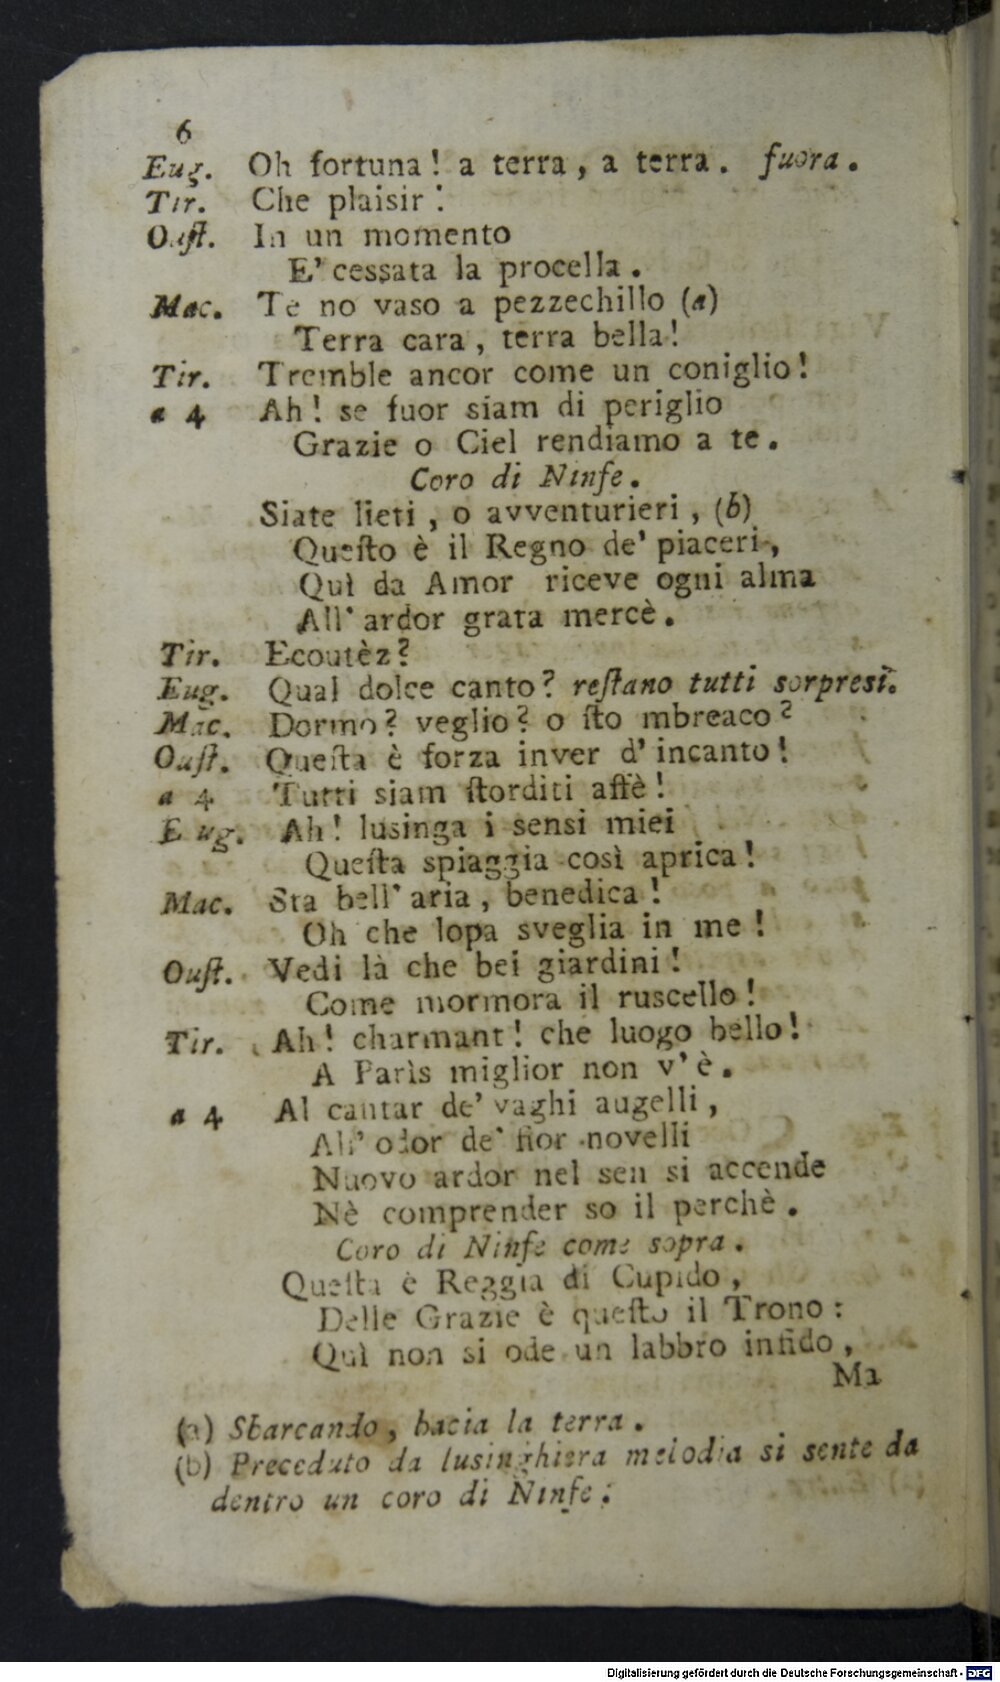 6
Eug. Oh fortuna! a terra, a terra. fuora.
Tir. Che plaisir!
Ouſt. In un momento
E' cessata la procella.
Mac. Te no vaso a pezzechillo (a)
Terra cara, terra bella!
Tir. Tremble ancor come un coniglio!
a 4 Ah! se fuor siam di periglio
Grazie o Ciel rendiamo a te.
Coro di Ninfe.
Siate lieti, o avventurieri, (b)
Queſto è il Regno de' piaceri,
Quì da Amor riceve ogni alma
All' ardor grata mercè.
Tir. Ecoutèz?
Eug. Qual dolce canto? reſtano tutti sorpresi.
Mac. Dormo? veglio? o ſto mbreaco?
Ouſt. Queſta è forza inver d' incanto!
a 4 Tutti siam ſtorditi affè!
Eug. Ah! lusinga i sensi miei
Queſta spiaggia così aprica!
Mac. Sta bell' aria, benedica!
Oh che lopa sveglia in me!
Ouſt. Vedi là che bei giardini!
Come mormora il ruscello!
Tir. Ah! charmant! che luogo bello!
A Parìs miglior non v' è.
a 4 Al cantar de' vaghi augelli,
All' odor de' fior novelli
Nuovo ardor nel sen si accende
Nè comprender so il perchè.
Coro di Ninfe come sopra.
Queſta è Reggia di Cupido,
Delle Grazie è queſto il Trono:
Quì non si ode un labbro infido,
Ma
(a) Sbarcando, bacia la terra.
(b) Preceduto da lusinghiera melodia si sente da
dentro un coro di Ninfe.
Digitalisierung gefördert durch die Deutsche Forschungsgemeinschaft - DFG